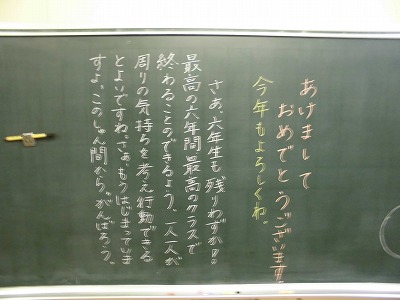 あけまして
おめでとうございます
今年もよろしくね。
さぁ、六年生も残りわずか!!
最高の六年間、最高のクラスで
終わることのできるよう、一人一人が
周りの気持ちを考え行動できる
とよいですね。さぁ、もうはじまっていま
すよ。このしゅん間から。がんばろう。